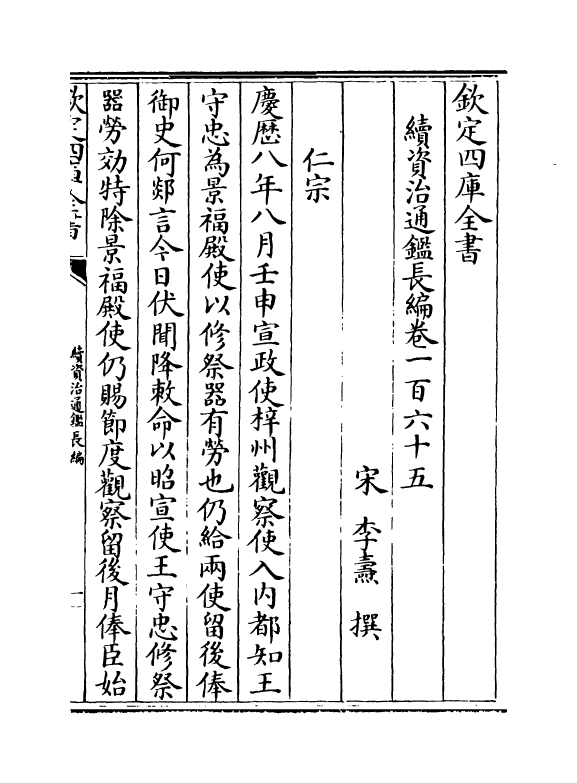 欽定四庫全書
續資治通鑑長編卷一百六十五
宋 李燾 撰
仁宗
慶歷八年八月壬申宣政使梓州觀察使入内都知王
守忠為景福殿使以修祭器有勞也仍給兩使留後俸
御史何郯言今日伏聞降敕命以昭宣使王守忠修祭
器勞効特除景福殿使仍賜節度觀察留後月俸臣始
欽定四庫全書
續資治通鑑長編
一